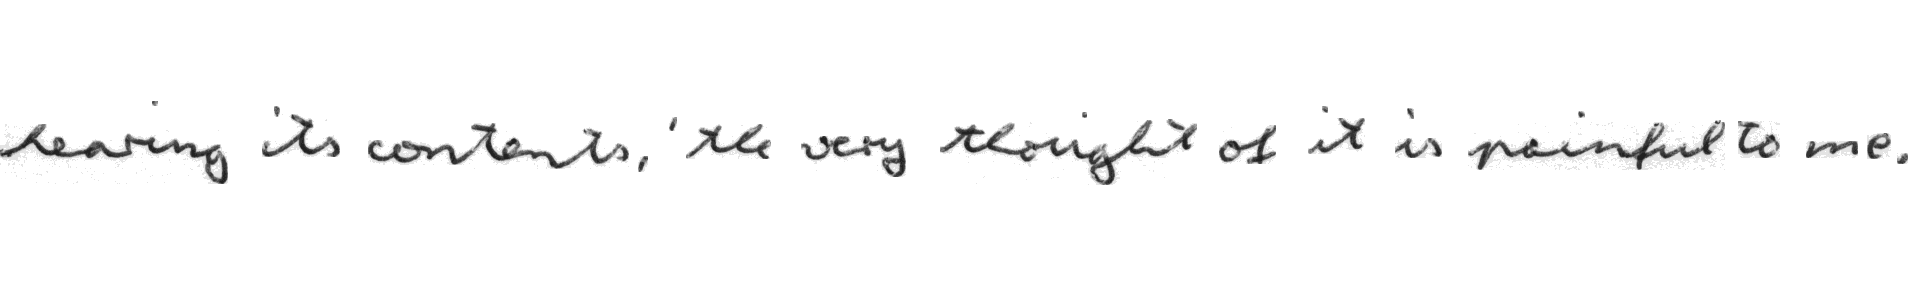 hearing its contents, 'the very thought of it is painful to me.